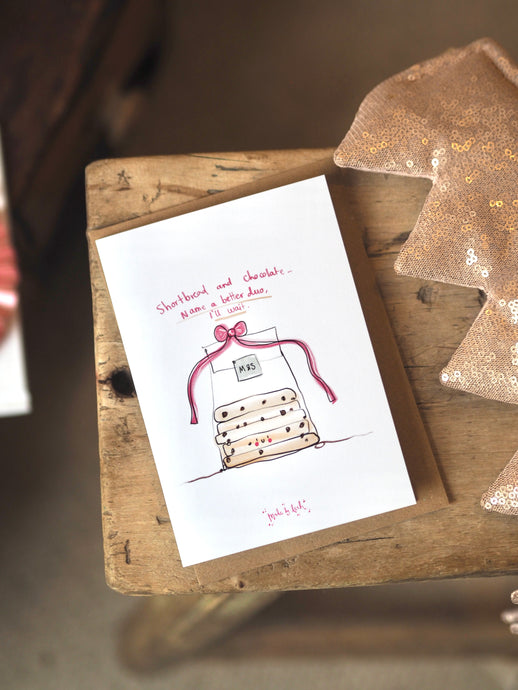 Shortbread and chocolate -
Name a better duo,
I'll wait.
M&S